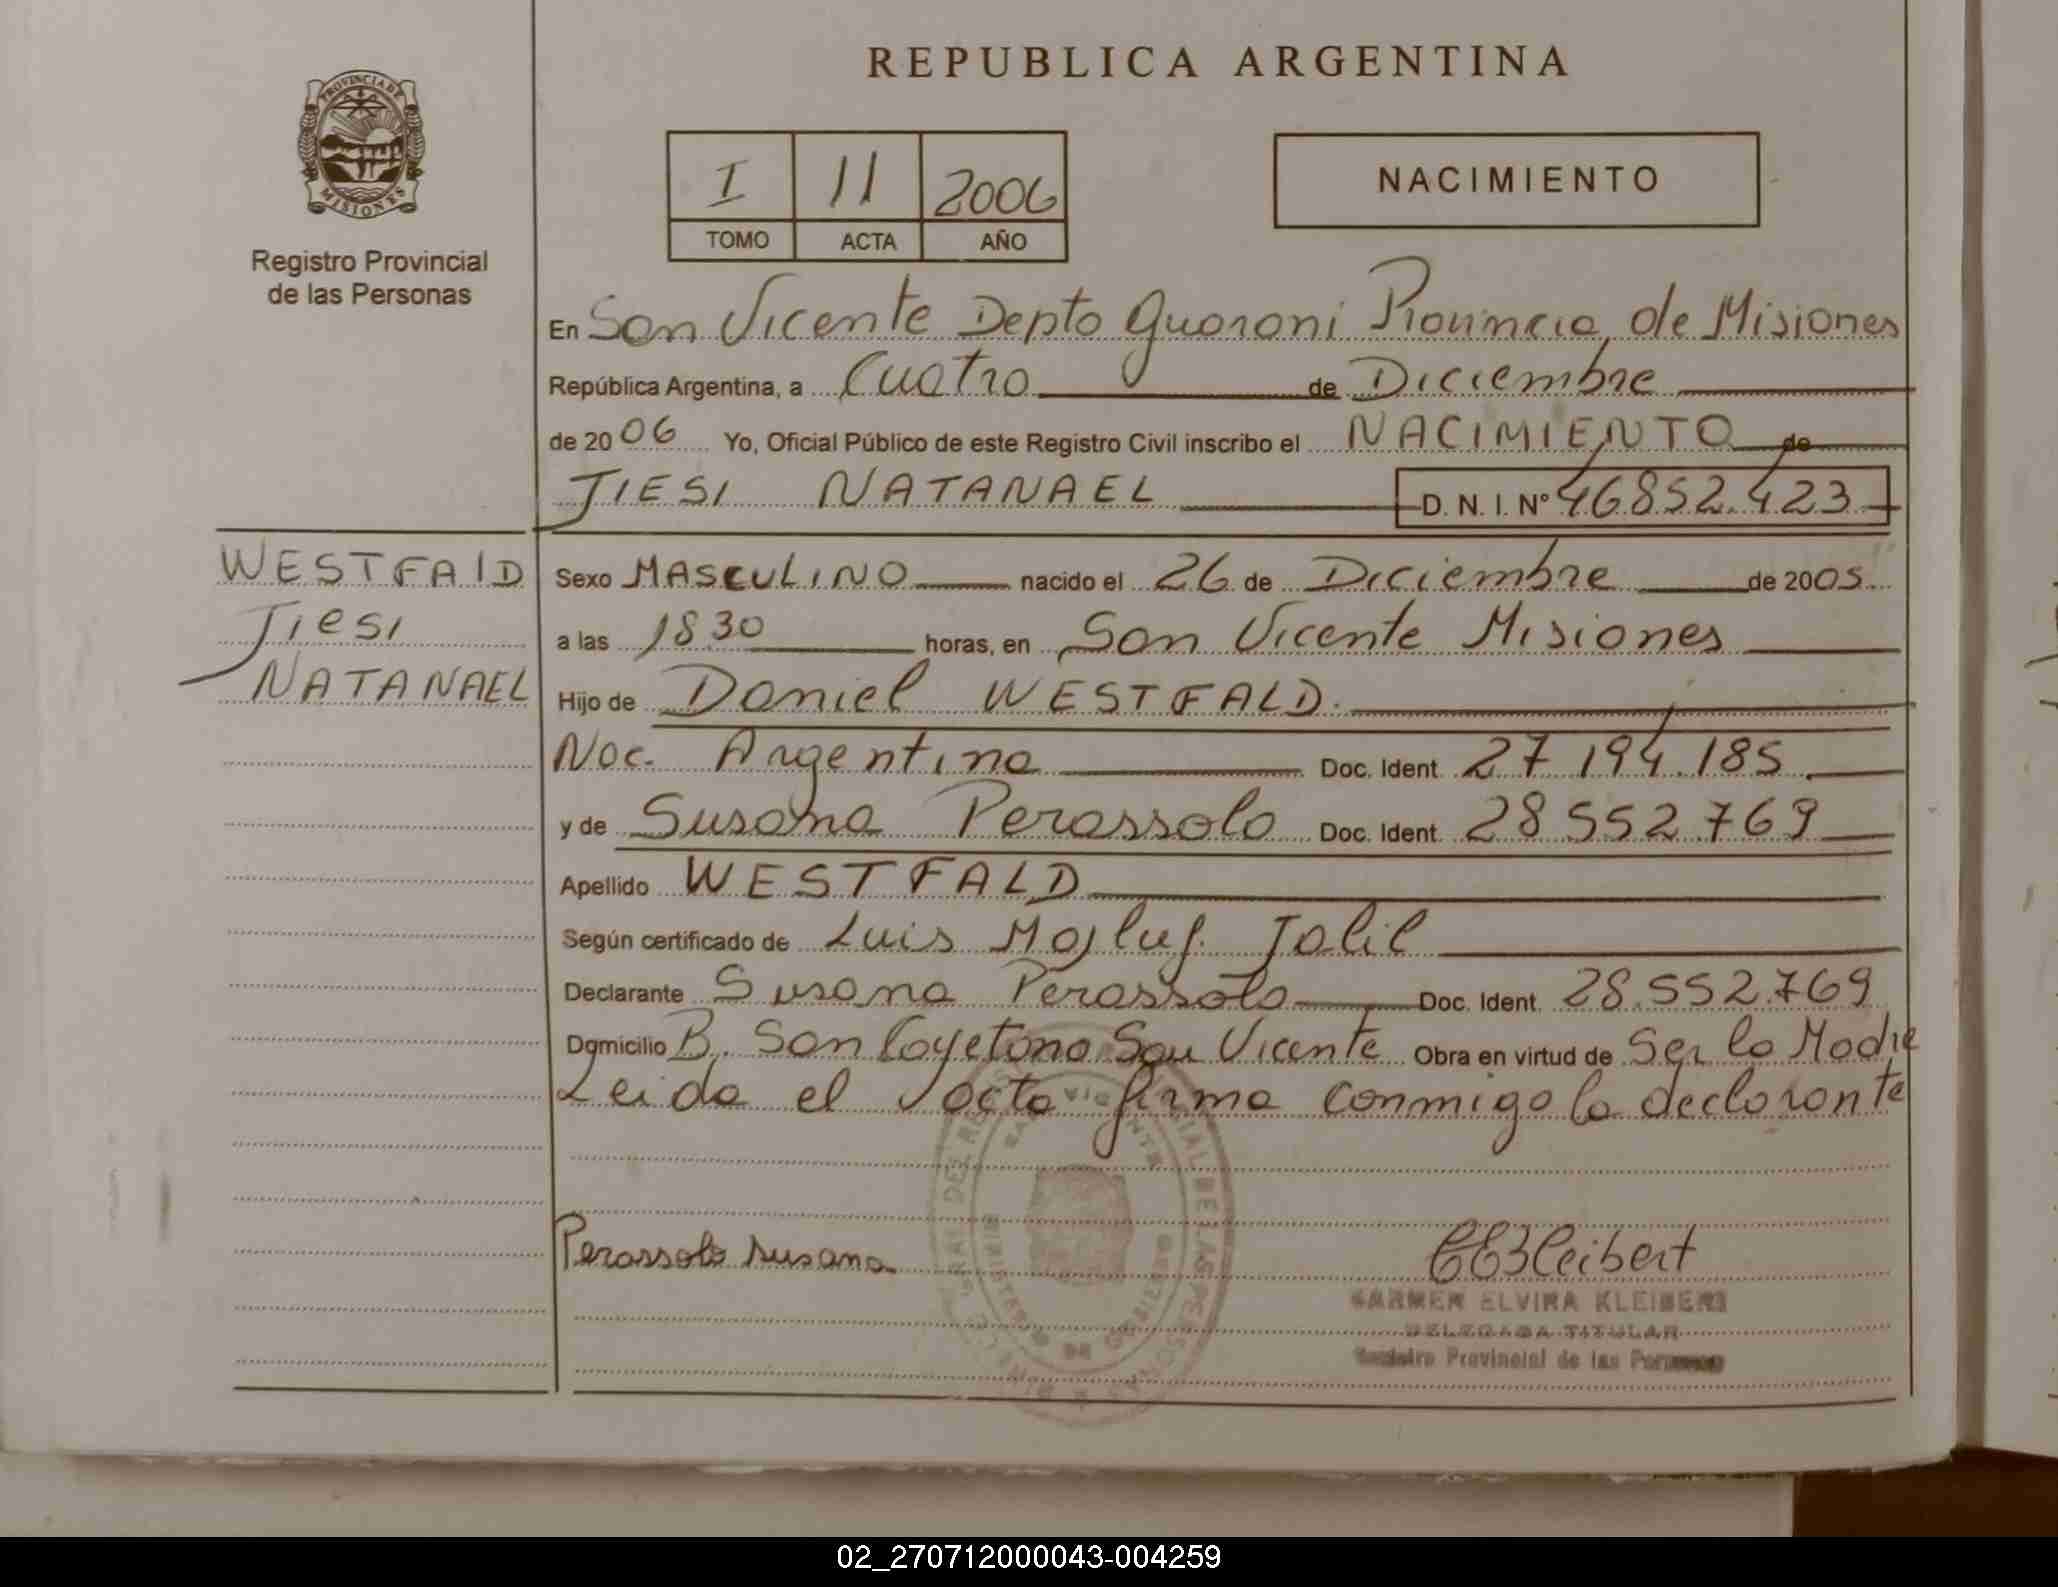 REPUBLICA ARGENTINA
PROVINCIA DE
MISIONES
Registro Provincial
de las Personas
I 11 2006
TOMO ACTA AÑO
NACIMIENTO
En San Vicente Depto Guarani Provincia de Misiones
República Argentina, a Cuatro de Diciembre
de 2006 Yo, Oficial Público de este Registro Civil inscribo el NACIMIENTO de
JIESI NATANAEL D. N. I. Nº 46852.423
WESTFALD
Jiesi
NATANAEL
Sexo MASCULINO nacido el 26 de Diciembre de 2005
a las 18 30 horas, en San Vicente Misiones
Hijo de Daniel WESTFALD.
Nac. Argentina Doc. Ident. 27 194.185
y de Susana Perassolo Doc. Ident. 28 552 769
Apellido WESTFALD
Según certificado de Luis Majluf Jalil
Declarante Susana Perassolo Doc. Ident. 28.552.769
Domicilio B. San Cayetano San Vicente Obra en virtud de Ser la Madre
Leida el acta firma conmigo la declarante
Perassolo Susana
CEKleibert
CARMEN ELVIRA KLEIBERT
DELEGADA TITULAR
Registro Provincial de las Personas
02_270712000043-004259